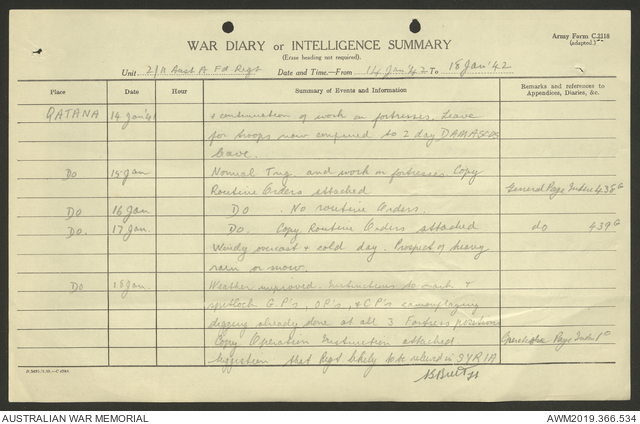 Army Form C.2118
(adapted.)
WAR DIARY or INTELLIGENCE SUMMARY
(Erase heading not required).
Unit 2/11 Aust A Fd. Regt Date and Time.—From 14 Jan '42 To 18 Jan '42
Place Date Hour Summary of Events and Information Remarks and references to Appendices, Diaries, &c.
QATANA 14 Jan '4 & continuation of work on fortresses. Leave
for troops now confined to 2 day DAMASCUS
leave.
Do 15 Jan Normal Tng. and work on fortresses. Copy
Routine Orders attached General Page 438
Do 16 Jan Do. No routine Orders.
Do. 17 Jan. Do. Copy Routine Orders attached do 439
Windy overcast & cold day. Prospect of heavy
rain or snow.
Do 18 Jan. Weather improved. Instructions to mark &
spitlock G.P's, O.P's, & C.P's camouflaging
digging already done at all 3 Fortress positions
Copy Operation Instruction attached. Page
Suggestion that Regt likely to be relieved in SYRIA
AUSTRALIAN WAR MEMORIAL
AWM2019.366.534